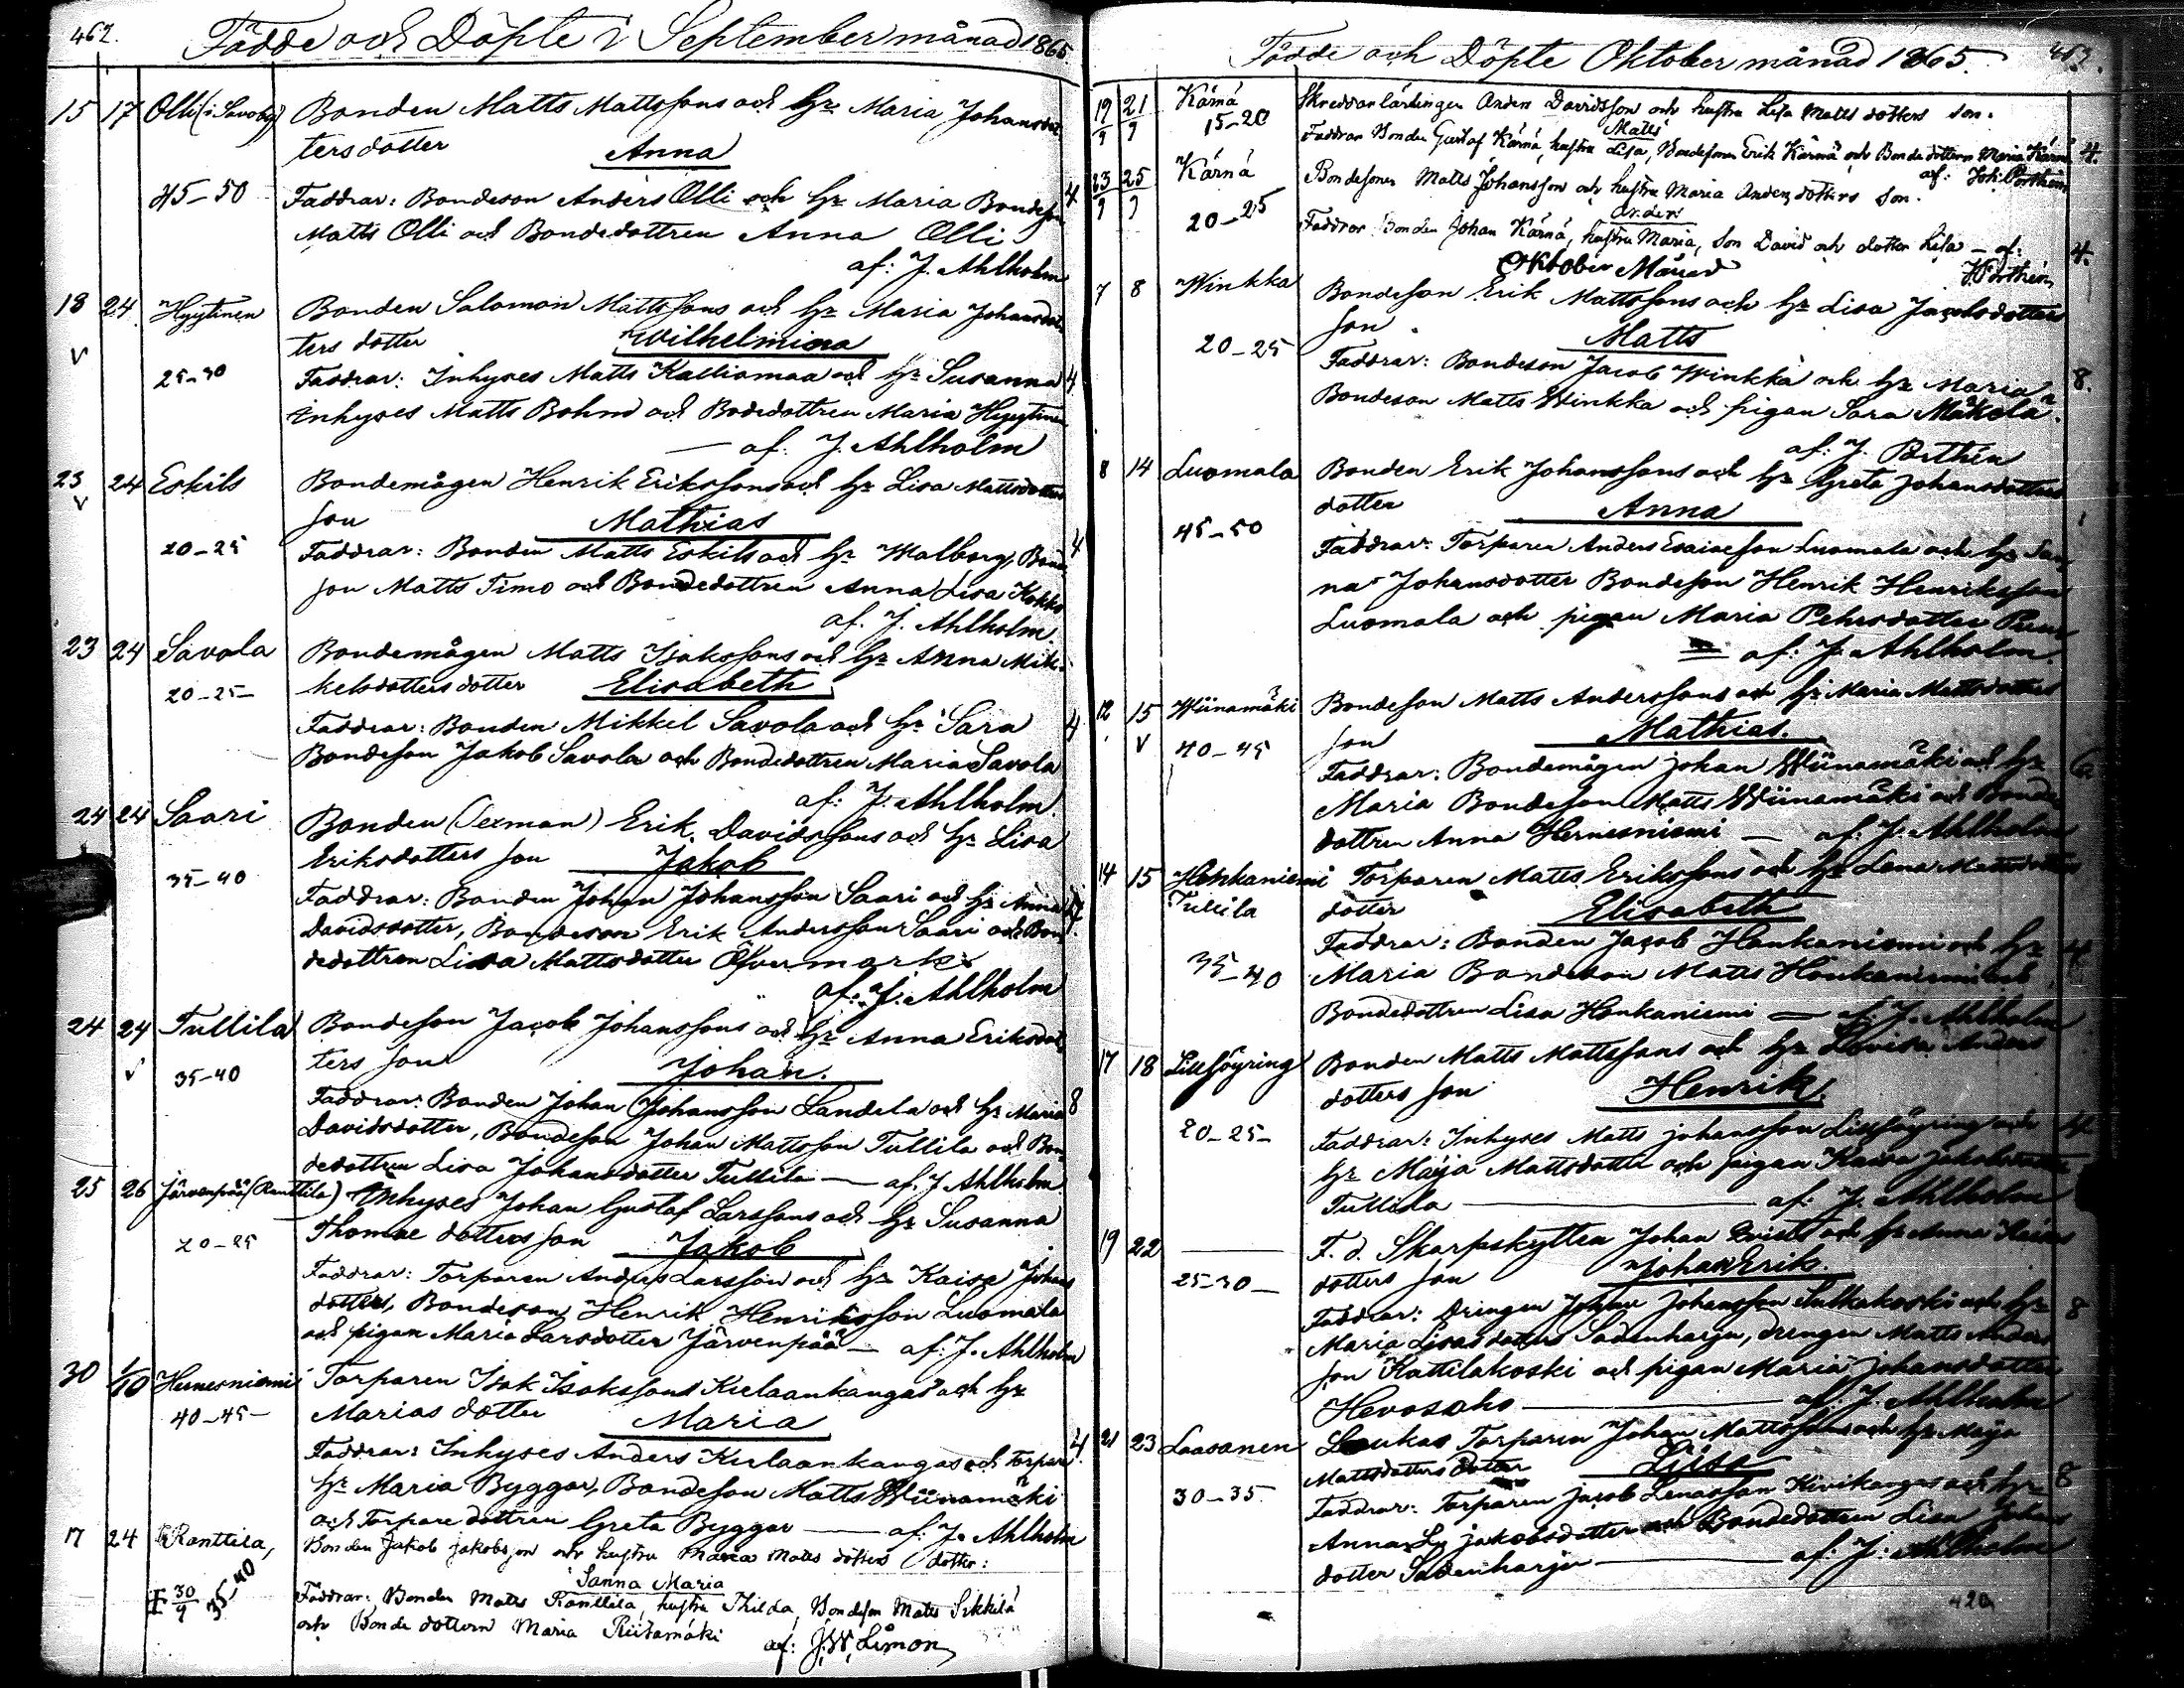 462.
Födde och Döpte i September månad 1865.
15 17 Olli (i Savoby) Bonden Matts Mattssons och hr Maria Johansdot-
tersdotter Anna
45-50 Faddrar: Bondeson Anders Olli och hr Maria Bondeson 4
Matts Olli och Bondedottren Anna Olli
af: J. Ahlholm
18 24. Hyytinen Bonden Salomon Mattssons och hr Maria Johansdot-
ters dotter Wilhelmina
25-30 Faddrar: Inhyses Matts Kalliomaa och hr Susanna 4
Inhyses Matts Bohm och Bodedottren Maria Hyytinen
— af. J. Ahlholm
23 24 Eskils Bondemågen Henrik Erikssons och hr Lisa Mattsdotters
son Mathias
20-25 Faddrar: Bonden Matts Eskils och hr Walborg, Bonde 4
son Matts Timo och Bondedottren Anna Lisa Kokko
af. J. Ahlholm.
23 24 Savola Bondemågen Matts Isakssons och hr Anna Mik-
20-25- kelsdotters dotter Elisabeth
Faddrar: Bonden Mikkel Savola och hr Sara 4
Bondeson Jakob Savola och Bondedottren Maria Savola
af: J. Ahlholm.
24 24 Saari Bonden (Sexman) Erik Davidssons och hr Lisa
Eriksdotters son Jakob
35-40 Faddrar: Bonden Johan Johansson Saari och hr Anna
Davidsdotter, Bondeson Erik Andersson Saari och Bon-
dedottren Lisa Mattsdotter Öfvermark
af: J. Ahlholm
24 24 Tullila Bondeson Jacob Johanssons och hr Anna Eriksdot-
ters son Johan.
35-40 Faddrar: Bonden Johan Johansson Sandela och hr Maria 8
Davidsdotter, Bondeson Johan Mattsson Tullila och Bon-
dedottren Lisa Johansdotter Tullila — af. J. Ahlholm.
25 26 Järvenpää (Ranttila) Inhyses Johan Gustaf Larssons och hr Susanna
20-25 Thomae dotters son Jakob
Faddrar: Torparen Anders Larsson och hr Kaisa Johans
dotter, Bondeson Henrik Henriksson Luomala
och pigan Maria Larsdotter Järvenpää — af: J. Ahlholm
30 1/10 Hernesniemi Torparen Isak Isakssons Kielaankangas och hr
40-45- Marias dotter Maria
Faddrar: Inhyses Anders Kielaankangas och Torpare 4.
hr Maria Byggar, Bondeson Matts Wiinamäki
och Torpare dottren Greta Byggar — af: J. Ahlholm
17 24 Ranttila, Bonden Jakob Jakobsson och hustru Maria Matts dotters dotter:
35-40 Sanna Maria
30/9 Faddrar: Bonden Matts Ranttila, hustru Thilda, Bondeson Matts Sikkilä
och Bonde dottern Maria Riitamäki af: J. W. Limon
463.
Födde och Döpte Oktober månad 1865.
19/9 21/9 Kärnä Skreddarlärlingen Anders Davidsson och hustru Lisa Matts dotters son.
15-20 Matts
Faddrar Bonden Gustaf Kärnä, hustru Lisa, Bondesonen Erik Kärnä och Bondedottern Maria Kärnä 4.
af: Joh. Porthén
23/9 25/9 Kärnä Bondesonen Matts Johansson och hustru Maria Anders dotters son.
20-25 Anders
Faddrar Bonden Johan Kärnä, hustru Maria, Son David och dotter Lisa — af: 4.
J. Porthén
Oktober Månad
7 8 Winkka Bondeson Erik Mattssons och hr Lisa Jacobsdotters
son Matts
20-25 Faddrar: Bondeson Jacob Winkka och hr Maria 8.
Bondeson Matts Winkka och pigan Sara Mäkelä.
af: J. Porthén
8 14 Luomala Bonden Erik Johanssons och hr Greta Johansdotters
dotter Anna
45-50 Faddrar: Torparen Anders Esaiaeson Luomala och hr San-
na Johansdotter Bondeson Henrik Henriksson
Luomala och pigan Maria Pehrsdotter
af: J. Ahlholm.
12 15 Wiinamäki Bondeson Matts Anderssons och hr Maria Mattsdotters
40-45 son Mathias.
Faddrar: Bondemågen Johan Wiinamäki och hr 6
Maria Bondeson Matts Wiinamäki och Bonde
dottren Anna Hernesniemi — af. J. Ahlholm
14 15 Honkaniemi Torparen Matts Erikssons och hr Lena Mattsdotters
Tullila dotter Elisabeth
Faddrar: Bonden Jacob Honkaniemi och hr 4
35-40 Maria Bondeson Matts Honkaniemi och
Bondedottren Lisa Honkaniemi — af. J. Ahlholm
17 18 Lillsöyring Bonden Matts Mattssons och hr Lovisa Anders
dotters son Henrik.
20-25- Faddrar: Inhyses Matts Johansson Lillsöyring och
hr Maija Mattsdotter och pigan Kaisa Jakobsdotter
Tullila — af: J. Ahlholm
19 22 — F. d. Skarpskytten Johan Qvists och hr Anna
25-30- dotters son Johan Erik.
Faddrar: Drengen Johan Johansson Sulkakoski och hr 8
Maria Lisasdotter Sadenharju, drengen Matts Anders
son Kattilakoski och pigan Maria Johansdotter
Hevosaho — af. J. Ahlholm
21 23 Laasanen Loukas Torparen Johan Mattssons och hr Maija
Mattsdotters dotter Liisa
30-35. Faddrar: Torparen Jacob Lenasson Kivikangas och hr 8
Anna Jakobsdotter och Bondedottren Lisa Johans
dotter Sadenharju — af: J. Ahlholm
420